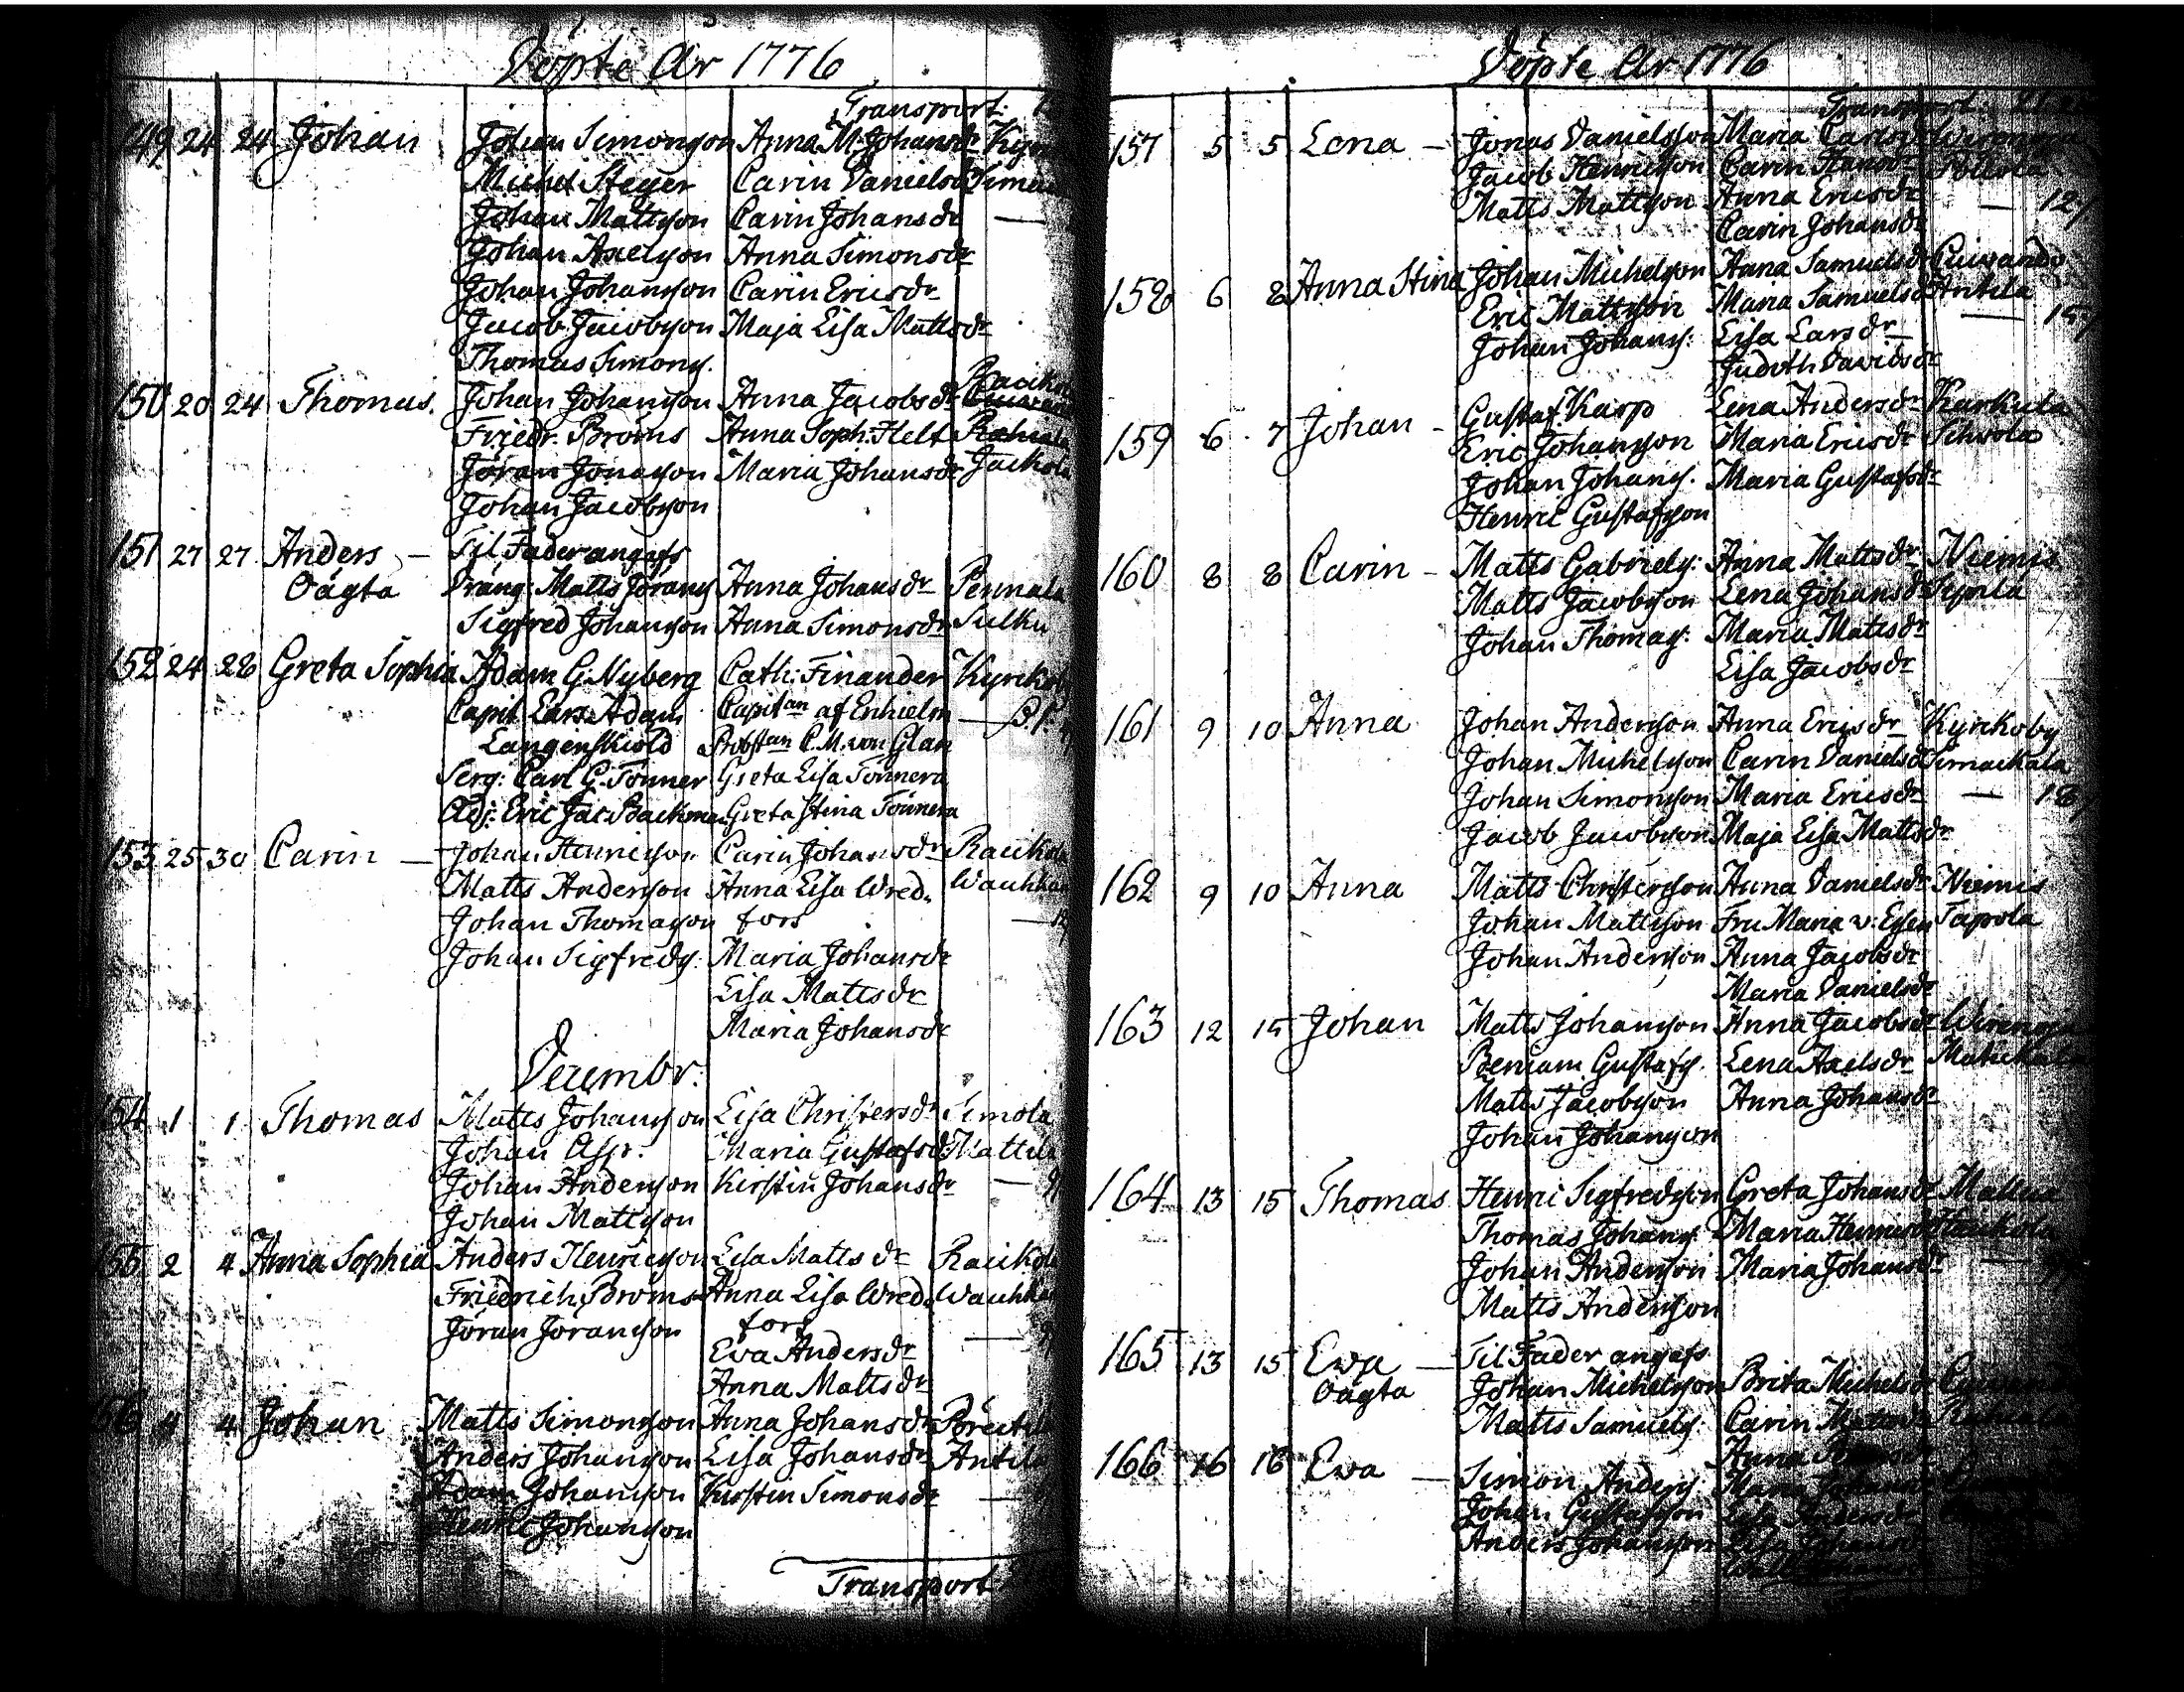 Döpte År 1776
Transport:
149 24 24 Johan Johan Simonsson Anna M. Johansdr
Michel Steger Carin Danielsdr
Johan Mattsson Carin Johansdr —
Johan Axelsson Anna Simonsdr
Johan Johansson Carin Ericsdr
Jacob Jacobsson Maja Lisa Mattsdr
Thomas Simons.
150 20 24 Thomas. Johan Johansson Anna Jacobsdr
Friedr. Broms Anna Soph. Helt
Jöran Jonasson Maria Johansdr
Johan Jacobsson
151 27 27 Anders — Til Fader angafs
Oägta Dräng: Matts Jörans Anna Johansdr Pennala
Sigfred Johansson Anna Simonsdr Sulku
152 24 28 Greta Sophia Adam G. Nyberg Cath: Finander
Capit. Lars Adam Capitan af Enhielm
Langenskiöld Probstan C. M. von Glan
Serg: Carl G. Tönner Greta Lisa Tönnera
Adj: Eric Jac. Backman Greta Stina Tönnera
153 25 30 Carin — Johan Henricsson Carin Johansdr
Matts Andersson Anna Lisa Wred-
Johan Thomasson fors
Johan Sigfreds: Maria Johansdr
Lisa Mattsdr
Maria Johansdr
Decembr:
154 1 1 Thomas Matts Johansson Lisa Christersdr Simola
Johan Asp. Maria Gustafsdr
Johan Andersson Kirstin Johansdr —
Johan Mattsson
155 2 4 Anna Sophia Anders Henricsson Lisa Mattsdr
Friedrich Broms Anna Lisa Wred-
Jöran Jöransson fors
Eva Andersdr
Anna Mattsdr
156 4 4 Johan Matts Simonsson Anna Johansdr
Anders Johansson Lisa Johansdr Antila
Adam Johansson Kirstin Simonsdr —
Henric Johansson
Transport
Döpte År 1776
Transport:
157 5 5 Lena — Jonas Danielsson Maria
Jacob Henricsson Carin Hansdr
Matts Mattsson Anna Ericsdr
Carin Johansdr
158 6 8 Anna Stina Johan Michelsson Anna Samuelsdr
Eric Mattsson Maria Samuelsdr Antila
Johan Johans: Lisa Larsdr —
Judith Davidsdr
159 6 7 Johan — Gustaf Karp Lena Andersdr Karkula
Eric Johansson Maria Ericsdr
Johan Johans. Maria Gustafsdr
Henric Gustafsson
160 8 8 Carin — Matts Gabriels: Anna Mattsdr Niemis
Matts Jacobsson Lena Johansdr Sipila
Johan Thomas: Maria Mattsdr
Lisa Jacobsdr
161 9 10 Anna Johan Andersson Anna Ericsdr Kyrckoby
Johan Michelsson Carin Danielsdr Simackala
Johan Simonsson Maria Ericsdr —
Jacob Jacobsson Maja Lisa Mattsdr
162 9 10 Anna Matts Christersson Anna Danielsdr Niemis
Johan Mattsson Fru Maria v: Essen Tapola
Johan Andersson Anna Jacobsdr
Maria Danielsdr
163 12 15 Johan Matts Johansson Anna Jacobsdr
Beniam. Gustafs. Lena Axelsdr
Matts Jacobsson Anna Johansdr
Johan Johansson
164 13 15 Thomas Henric Sigfredsson Greta Johansdr
Thomas Johans. Maria Henricsdr
Johan Andersson Maria Johansdr —
Matts Andersson
165 13 15 Ewa — Til Fader angafs
Oägta Johan Michelsson Brita Michelsdr
Matts Samuels. Carin
Anna
166 16 16 Ewa — Simon Anders
Johan Gustafsson Lisa Andersdr
Anders Johansson Lisa Johansdr